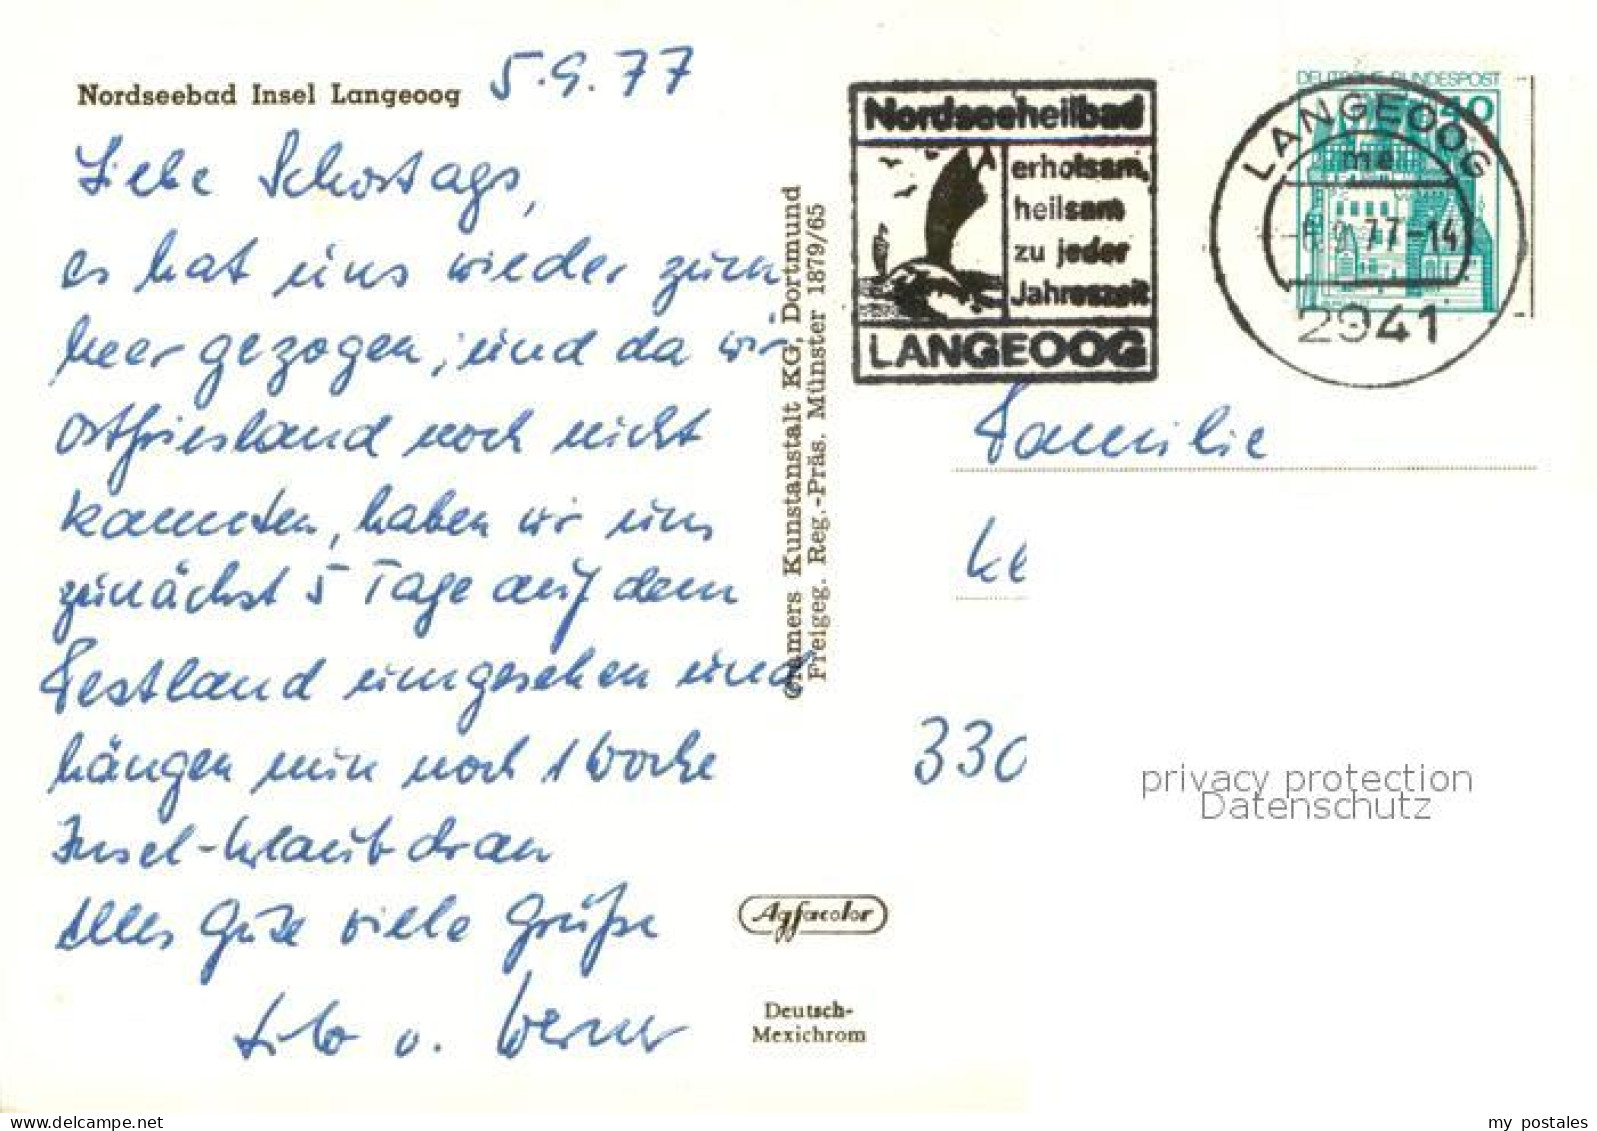 Nordseebad Insel Langeoog
5.9.77
Liebe Schostags,
es hat uns wieder zum
Meer gezogen, und da wir
Ostfriesland noch nicht
kannten, haben wir uns
zunächst 5 Tage auf dem
Festland umgesehen und
hängen nun noch 1 Woche
Insel-Urlaub dran
Alles Gute viele Grüße
u. Werner
Cramers Kunstanstalt KG, Dortmund
Freigeg. Reg.-Präs. Münster 1879/65
Nordseeheilbad
erholsam,
heilsam
zu jeder
Jahreszeit
LANGEOOG
DEUTSCHE BUNDESPOST
40
LANGEOOG
me
-6.9.77-14
2941
Familie
330
privacy protection
Datenschutz
Agfacolor
Deutsch-
Mexichrom
delcampe.net
my_postales